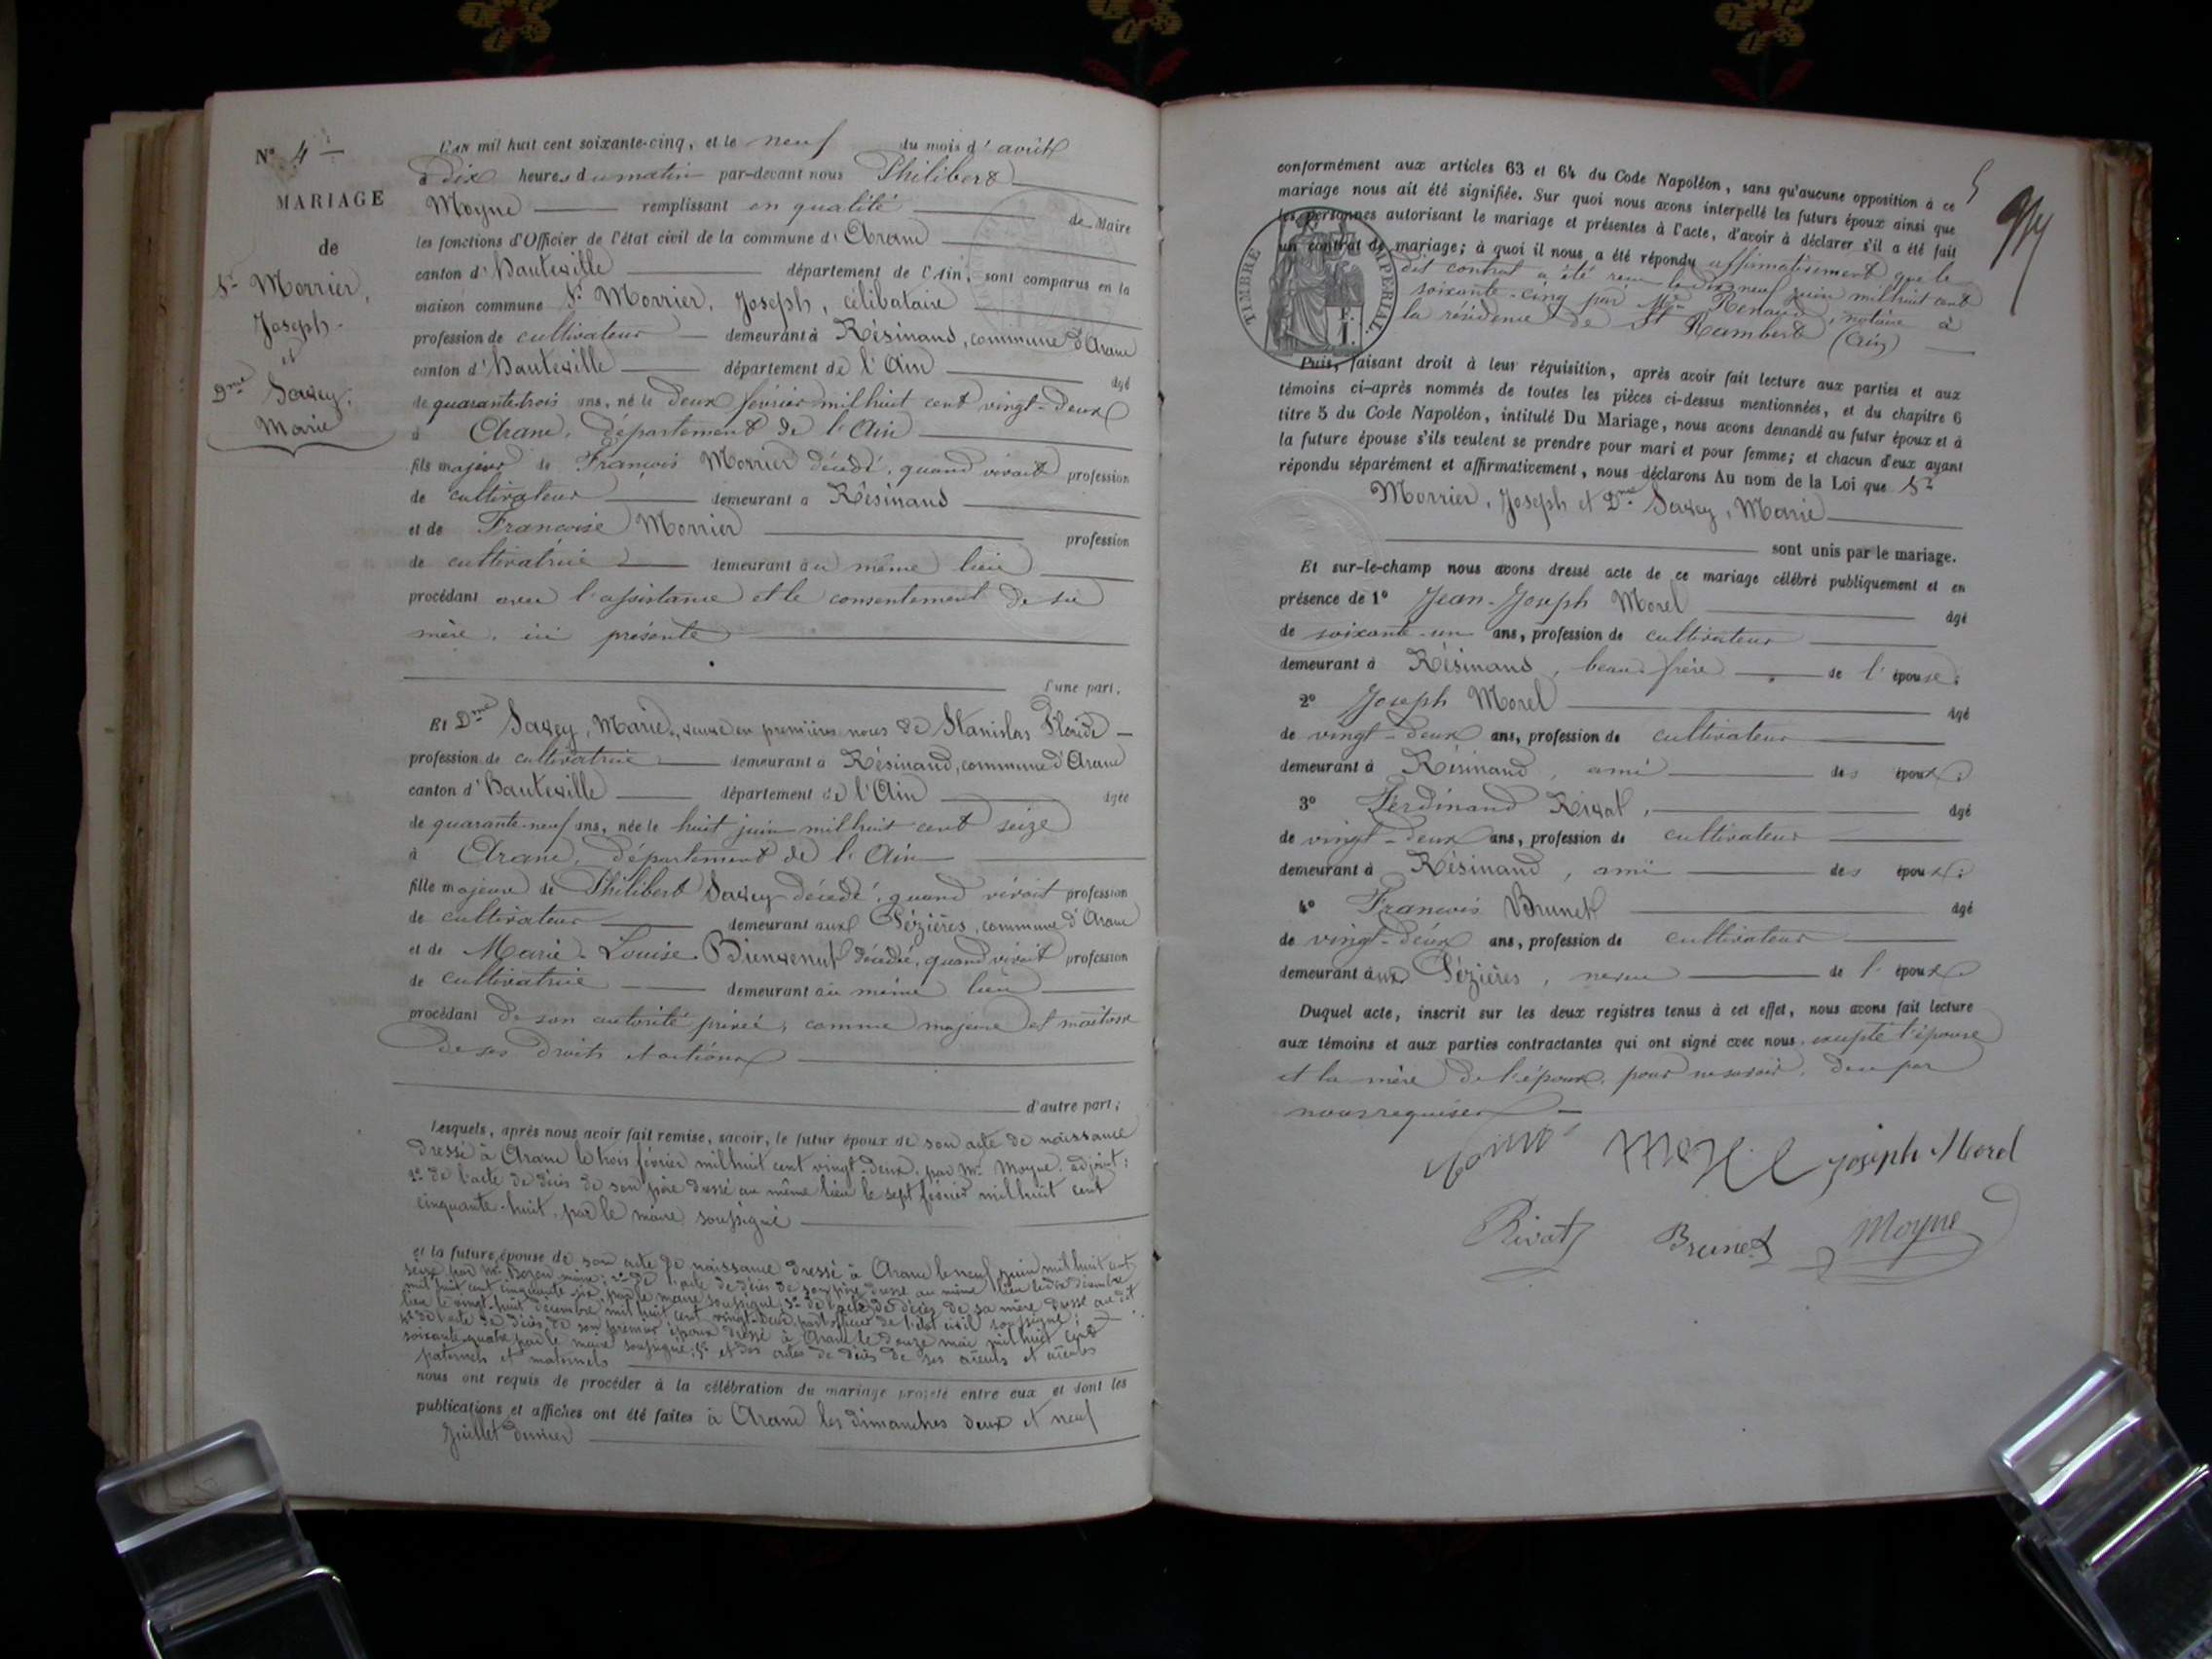 N° 4
MARIAGE
de
Sr Morrier,
Joseph
et
Dme Savey,
Marie
L'an mil huit cent soixante-cinq, et le neuf du mois d'août
à dix heures du matin par-devant nous Philibert
Moyne remplissant en qualité de Maire
les fonctions d'Officier de l'état civil de la commune d'Aranc
canton d'Hauteville département de l'Ain, sont comparus en la
maison commune Sr Morrier, Joseph, célibataire
profession de cultivateur demeurant à Résinand, commune d'Aranc
canton d'Hauteville département de l'Ain âgé
de quarante-trois ans, né le deux février mil huit cent vingt-deux
à Aranc, département de l'Ain
fils majeur de François Morrier décédé, quand vivait profession
de cultivateur demeurant à Résinand
et de Françoise Morrier profession
de cultivatrice demeurant au même lieu
procédant avec l'assistance et le consentement de sa
mère, ici présente
d'une part.
Et Dme Savey, Marie, veuve en premières noces de Stanislas
profession de cultivatrice demeurant à Résinand, commune d'Aranc
canton d'Hauteville département de l'Ain âgée
de quarante-neuf ans, née le huit juin mil huit cent seize
à Aranc, département de l'Ain
fille majeure de Philibert Savey décédé, quand vivait profession
de cultivateur demeurant aux Pézières, commune d'Aranc
et de Marie-Louise Bienvenut décédée, quand vivait profession
de cultivatrice demeurant au même lieu
procédant de son autorité privée, comme majeure et maîtresse
de ses droits et actions
d'autre part;
Lesquels, après nous avoir fait remise, savoir, le futur époux de son acte de naissance
dressé à Aranc le trois février mil huit cent vingt-deux, par Mr Moyne, adjoint;
2° de l'acte de décès de son père dressé au même lieu le sept février mil huit cent
cinquante-huit, par le maire soussigné
et la future épouse de son acte de naissance dressé à Aranc le neuf juin mil huit cent
seize par Mr maire; 2° de l'acte de décès de son père dressé au même lieu le dix décembre
mil huit cent cinquante-six par le maire soussigné; 3° de l'acte de décès de sa mère dressé au dit
lieu le vingt-huit décembre mil huit cent vingt-deux par l'officier de l'état civil soussigné;
4° de l'acte de décès de son premier époux dressé à Aranc le douze mai mil huit cent
soixante-quatre par le maire soussigné; 5° et des actes de décès de ses aïeuls et aïeules
paternels et maternels
nous ont requis de procéder à la célébration du mariage projeté entre eux et dont les
publications et affiches ont été faites à Aranc les dimanches deux et neuf
juillet dernier
conformément aux articles 63 et 64 du Code Napoléon, sans qu'aucune opposition à ce
mariage nous ait été signifiée. Sur quoi nous avons interpellé les futurs époux ainsi que
les personnes autorisant le mariage et présentes à l'acte, d'avoir à déclarer s'il a été fait
un contrat de mariage; à quoi il nous a été répondu affirmativement que le
dit contrat a été reçu le dix neuf juin mil huit cent
soixante-cinq par Me Renaud, notaire à
la résidence de St Rambert (Ain)
TIMBRE IMPERIAL.
Puis, faisant droit à leur réquisition, après avoir fait lecture aux parties et aux
témoins ci-après nommés de toutes les pièces ci-dessus mentionnées, et du chapitre 6
titre 5 du Code Napoléon, intitulé Du Mariage, nous avons demandé au futur époux et à
la future épouse s'ils veulent se prendre pour mari et pour femme; et chacun d'eux ayant
répondu séparément et affirmativement, nous déclarons Au nom de la Loi que Sr
Morrier, Joseph et Dme Savey, Marie
sont unis par le mariage.
Et sur-le-champ nous avons dressé acte de ce mariage célébré publiquement et en
présence de 1° Jean-Joseph Morel âgé
de soixante-un ans, profession de cultivateur
demeurant à Résinand, beau-frère de l'épouse;
2° Joseph Morel âgé
de vingt-deux ans, profession de cultivateur
demeurant à Résinand, ami des époux;
3° Ferdinand Rivat, âgé
de vingt-deux ans, profession de cultivateur
demeurant à Résinand, ami des époux;
4° François Brunet âgé
de vingt-deux ans, profession de cultivateur
demeurant aux Pézières, neveu de l'époux
Duquel acte, inscrit sur les deux registres tenus à cet effet, nous avons fait lecture
aux témoins et aux parties contractantes qui ont signé avec nous, excepté l'épouse
et la mère de l'époux, pour ne savoir, de ce par
nous requises
Morel Joseph Morel
Rivat Brunet Moyne